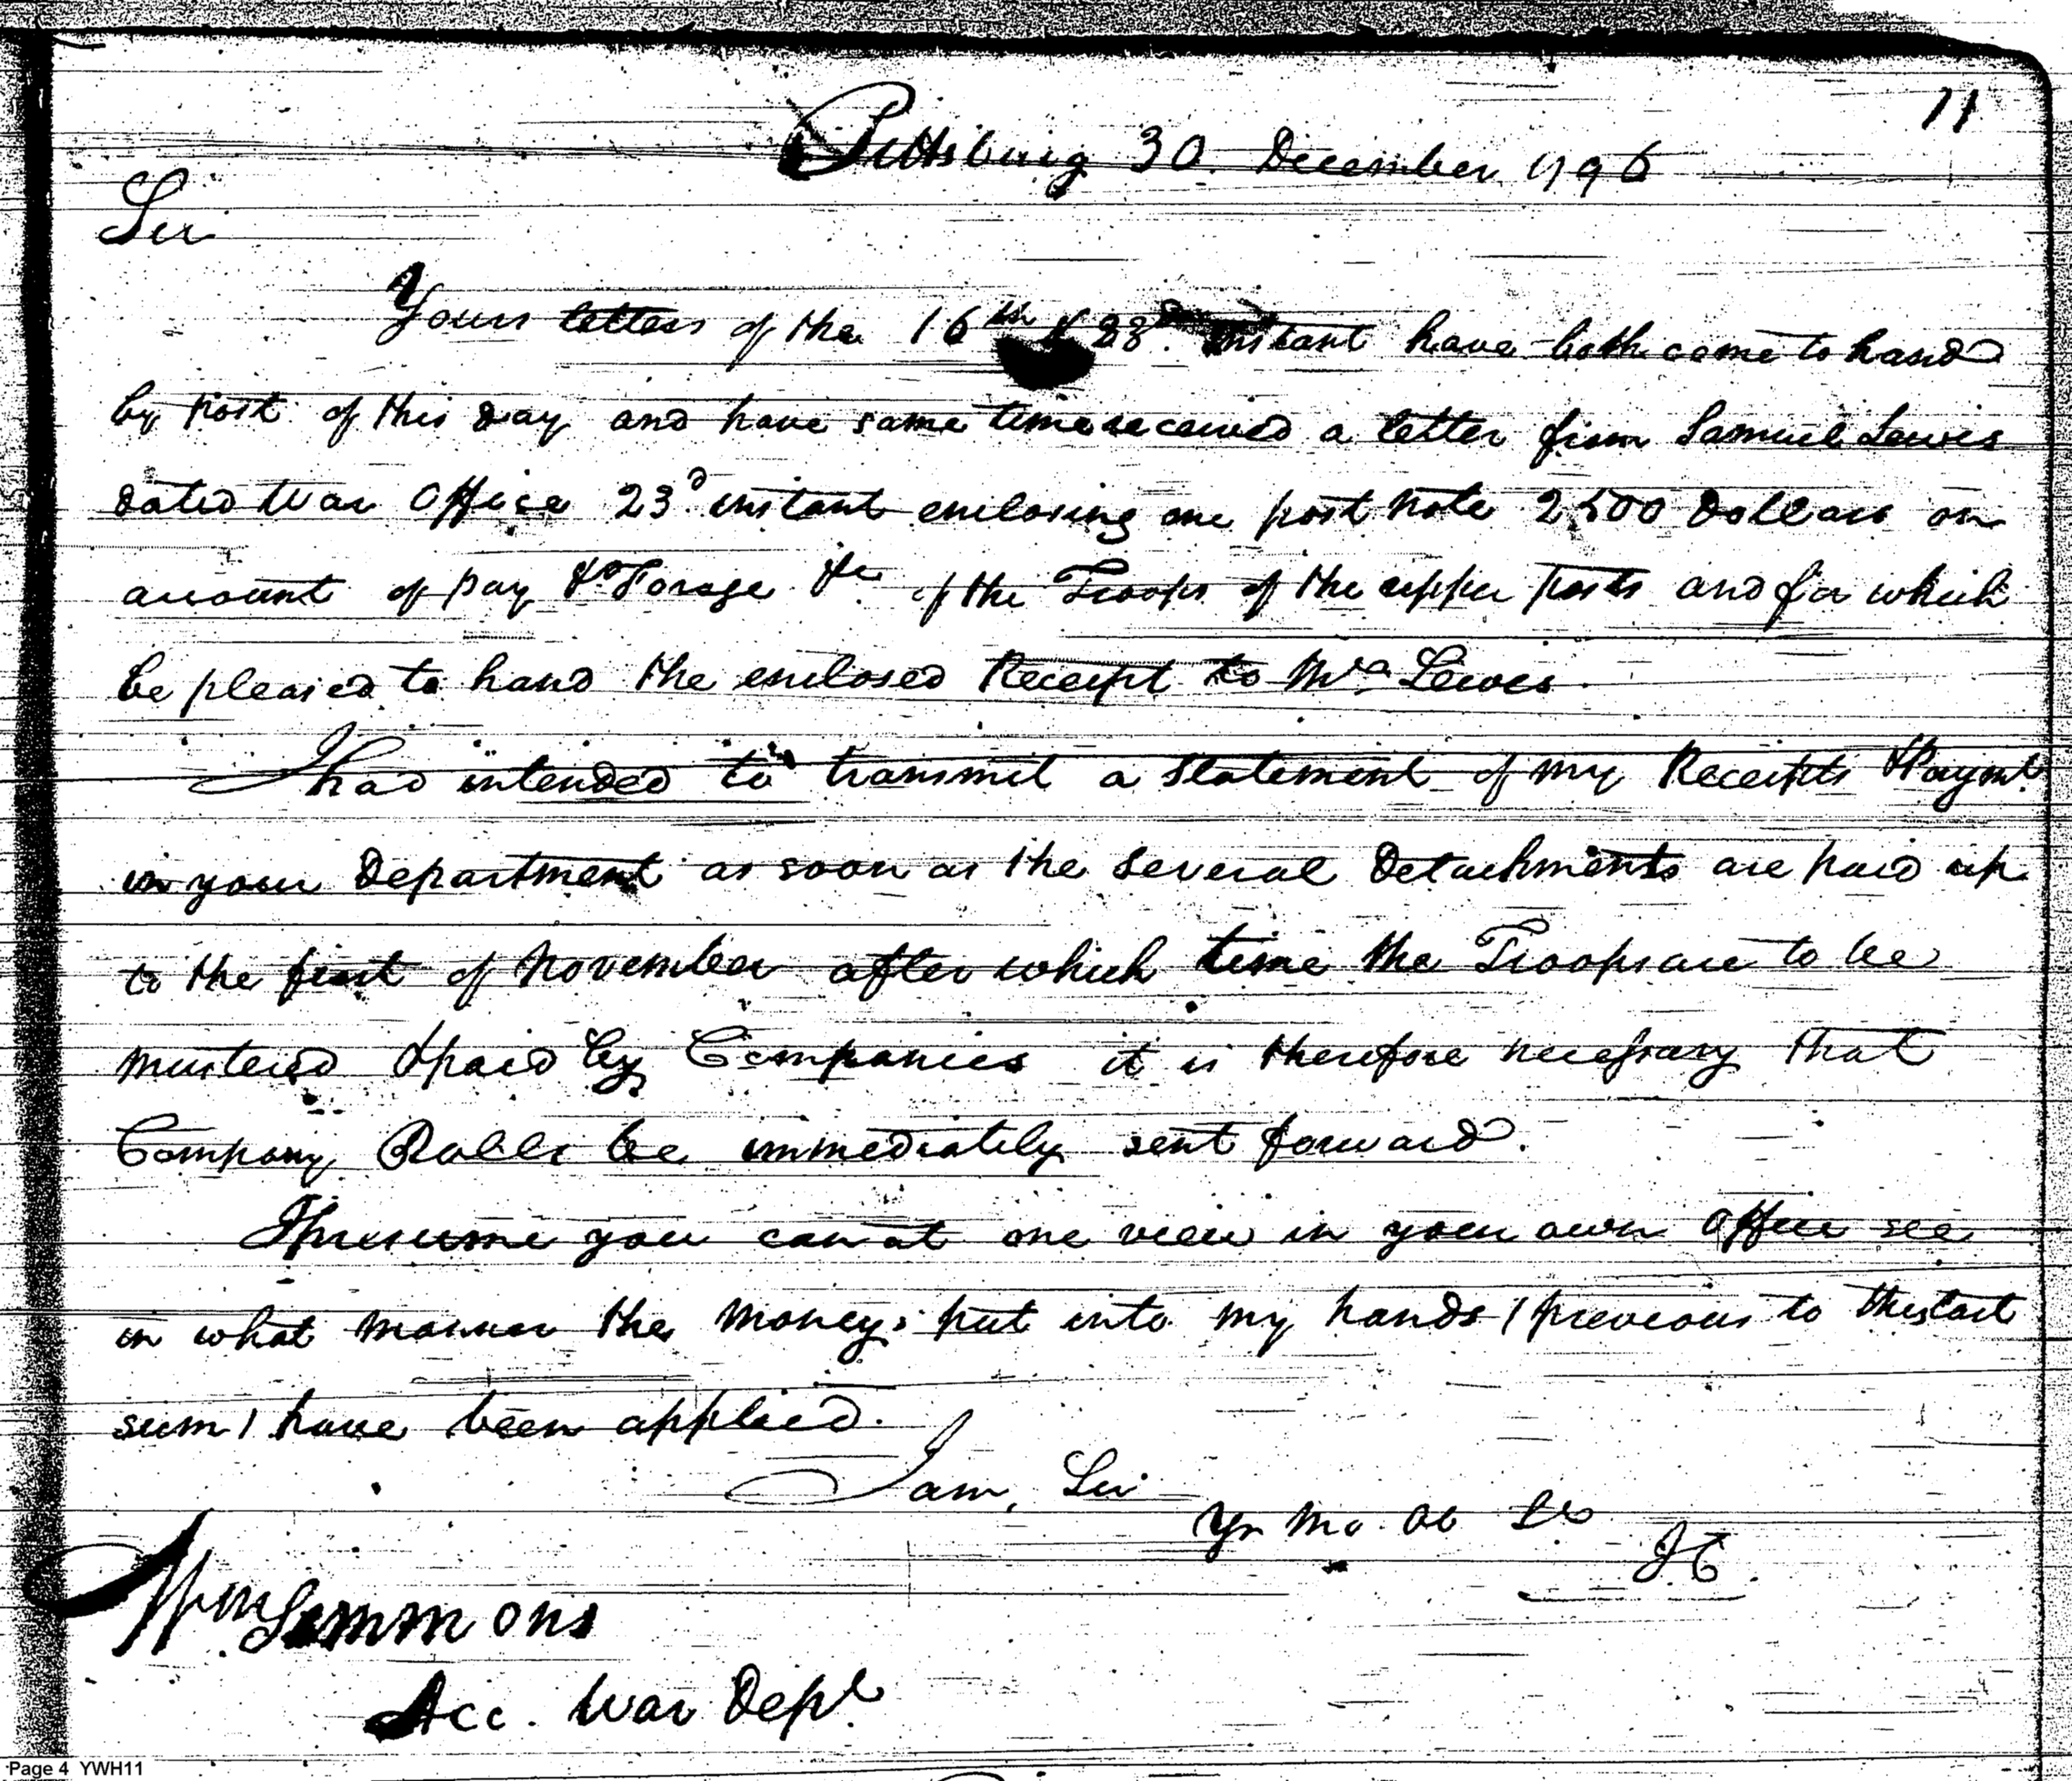 11
Pittsburg 30. December 1796
Sir
Yours letters of the 16th & 23d. instant have both come to hand
by post of this day and have same time received a letter from Samuel Lewis
dated War Office 23d instant enclosing one post note 2500 Dollars on
account of pay & Forage &c of the Troops of the upper posts and for which
be pleased to hand the enclosed Receipt to Mr. Lewis.
I had intended to transmit a Statement of my Receipts & Paymt.
in your Department as soon as the several Detachments are paid up
to the first of November after which time the Troops are to be
mustered & paid by Companies it is therefore necessary that
Company Rolls be immediately sent forward.
I presume you can at one view in your own office see
in what manner the moneys put into my hands (previous to the last
sum) have been applied.
I am, Sir
Yr Mo. Ob Se
JC.
Wm Simmons
Acc. War Dept.
Page 4 YWH11